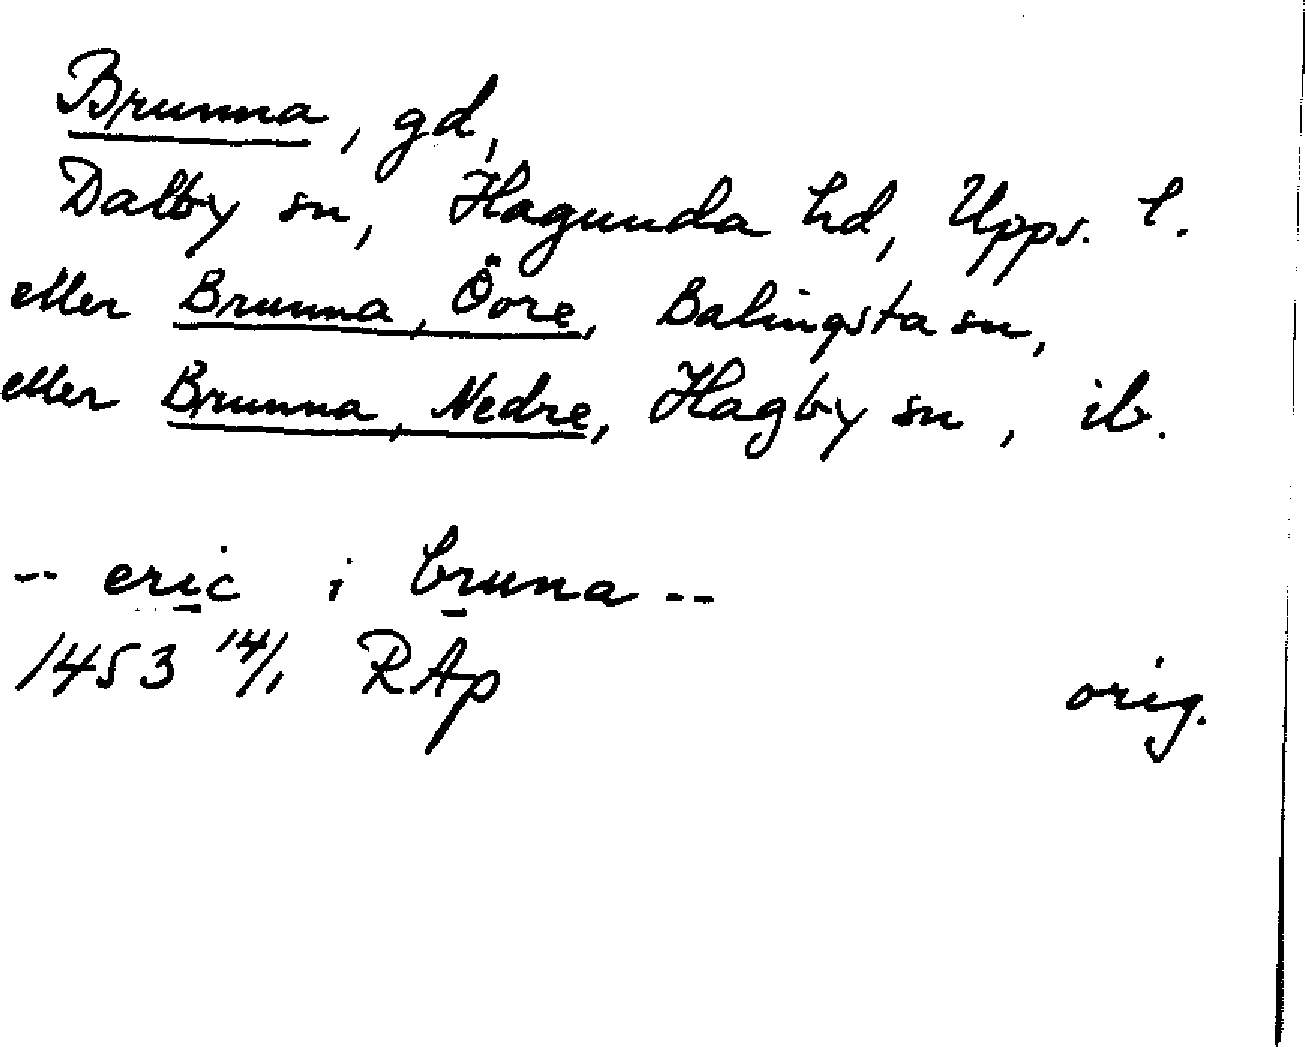 Brunna, gd,
Dalby sn, Hagunda hd, Upps. l.
eller Brunna, Övre, Balingsta sn,
eller Brunna, Nedre, Hagby sn, ib.
-- eric i bruna --
1453 14/1 RAp orig.